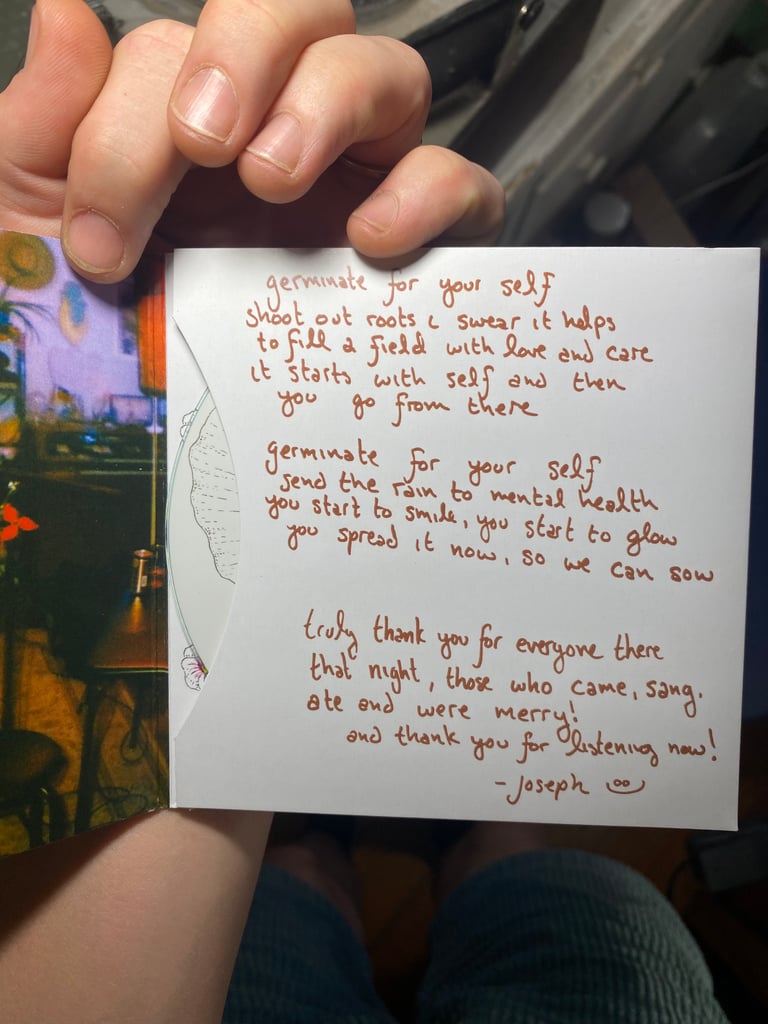 germinate for your self
shoot out roots i swear it helps
to fill a field with love and care
it starts with self and then
you go from there
germinate for your self
send the rain to mental health
you start to smile, you start to glow
you spread it now, so we can sow
truly thank you for everyone there
that night, those who came, sang,
ate and were merry!
and thank you for listening now!
- Joseph